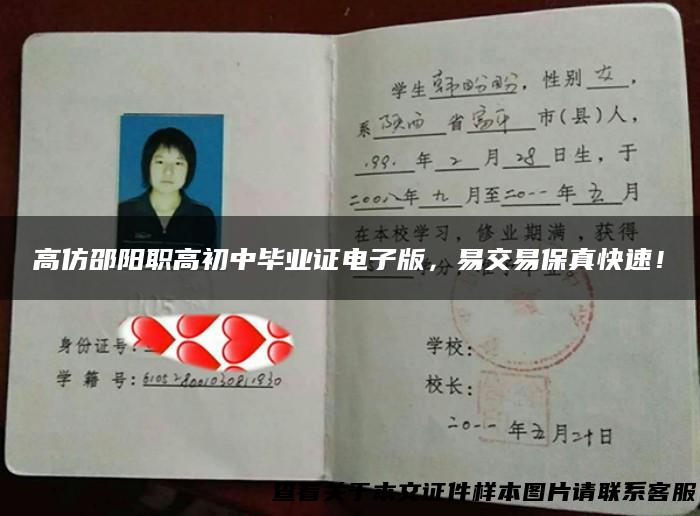 学生韩盼盼，性别女，
系陕西省富平市(县)人，
199.年2月28日生，于
二00八年九月至二0一一年五月
在本校学习，修业期满，获得
高仿邵阳职高初中毕业证电子版，易交易保真快速！
身份证号：
学籍号：
学校：
校长：
二0一一年五月二十日
查看关于本文证件样本图片请联系客服